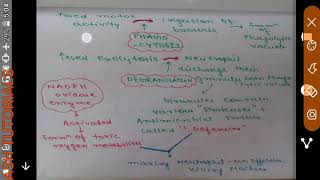 ↑sed motor activity → ingestion of bacteria → Formn of Phagolytic vacuole
PHAGO
-CYTOSIS
↑sed exocytosis → Neutrophil
discharge their
DEGRANULATION
granules into Phago
cytic vacuole
NADPH
oxidase
enzyme
Activated
Formn of toxic
oxygen metabolites
Granules contain
various "Proteases" &
Antimicrobial Protein
called "Defensin"
making Neutrophil - an Effective
Killing Machine
ASK TUTORIALS
29%
5:04